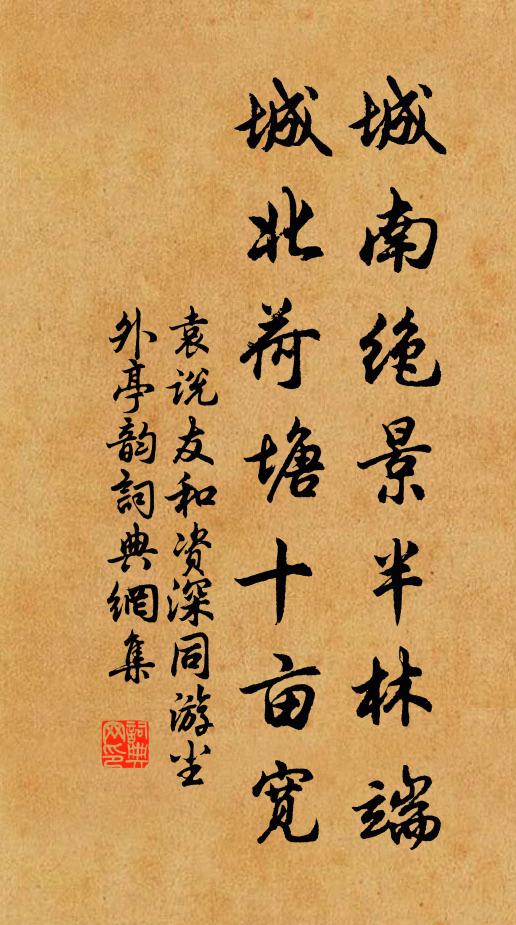 城南绝景半林端
城北荷塘十亩宽
袁说友和资深同游尘
外亭韵詞典網集
詞典
网印